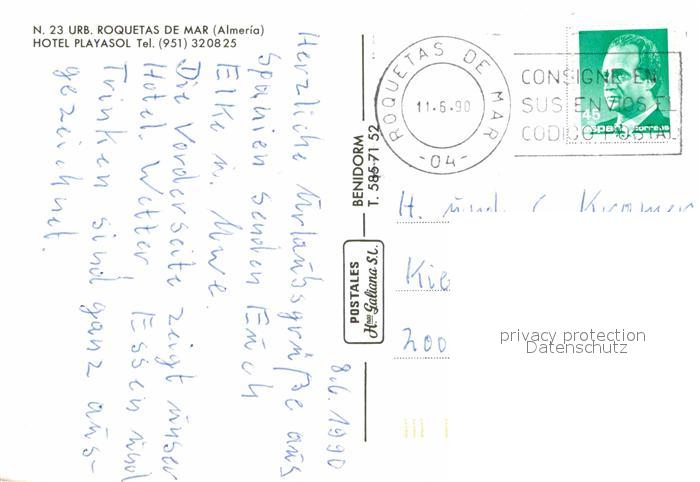 N. 23 URB. ROQUETAS DE MAR (Almería)
HOTEL PLAYASOL Tel. (951) 320825
8.6.1990
Herzliche Urlaubsgrüße aus
Spanien senden Euch
Elke u. Uwe.
Die Vorderseite zeigt unser
Hotel. Wetter Essen und
Trinken sind ganz aus-
gezeichnet.
BENIDORM
T. 585 71 52
POSTALES
Hnos Galiana S.L.
ROQUETAS DE MAR
11.6.90
-04-
CONSIGNE EN
SUS ENVIOS EL
CODIGO POSTAL
45
España correos
H. und Kramer
Kie
200
privacy protection
Datenschutz